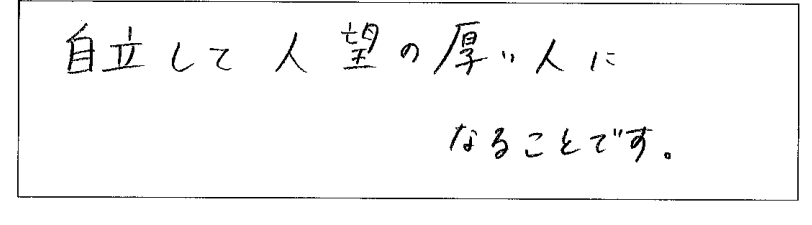 自立して人望の厚い人に
なることです。